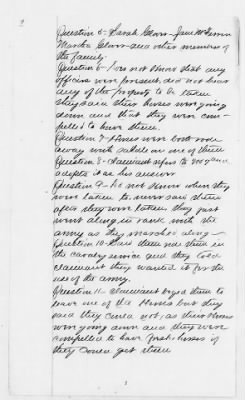 Question 5 - Sarah Glover - Jane McGinnin
Martha Glover and other members of
the family.
Question 6 - Does not know that any
officers were present, did not hear
any of the property to be taken
they said their horses were going
down and that they were com-
pelled to have them.
Question 7 - Horses were
away with saddle on one of them
Question 8 - Claimant refers to 7 &
adopts it as his answer
Question 9 - He not know when they
were taken to, never saw them
after they were taken they just
went along in rank with the
army as they marched along -
Question 10 - Said them use them in
the cavalry service and they told
claimant they wanted it for the
use of the army.
Question 11 - Claimant beged them to
leave one of the horses but they
said they could not, as their horses
were going down and they were
compelled to have fresh horses if
they could get them